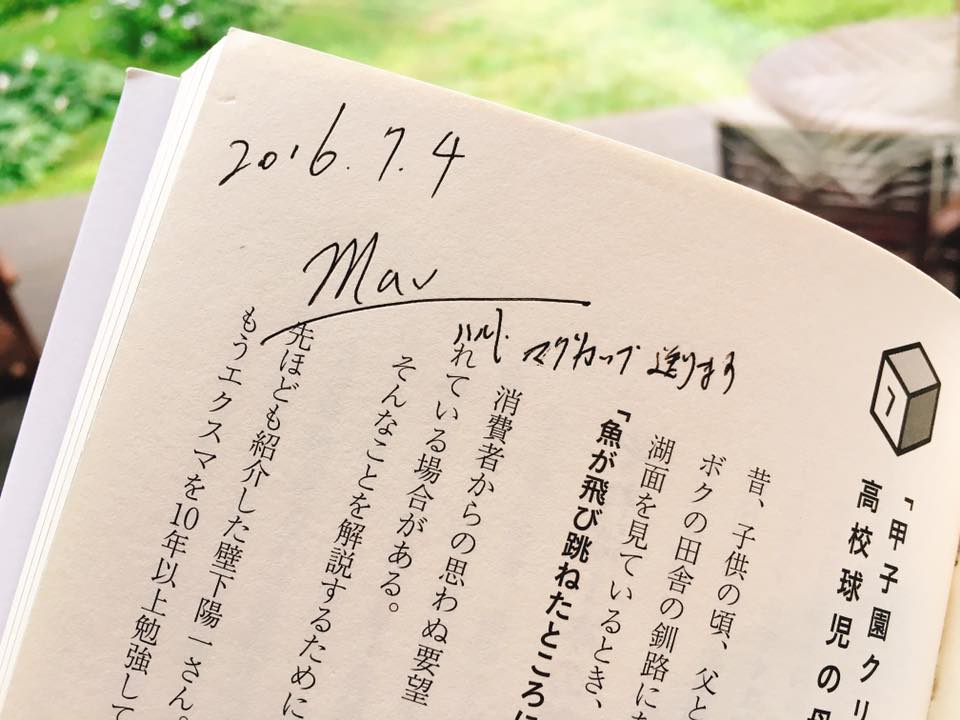 2016.7.4
Mav
マグカップ 送ります
7
「甲子園クリ
高校球児の母
昔、子供の頃、父と
ボクの田舎の釧路に
湖面を見ているとき、
「魚が飛び跳ねたところに
消費者からの思わぬ要望
れている場合がある。
そんなことを解説するために
先ほども紹介した壁下陽一さん。
もうエクスマを10年以上勉強して